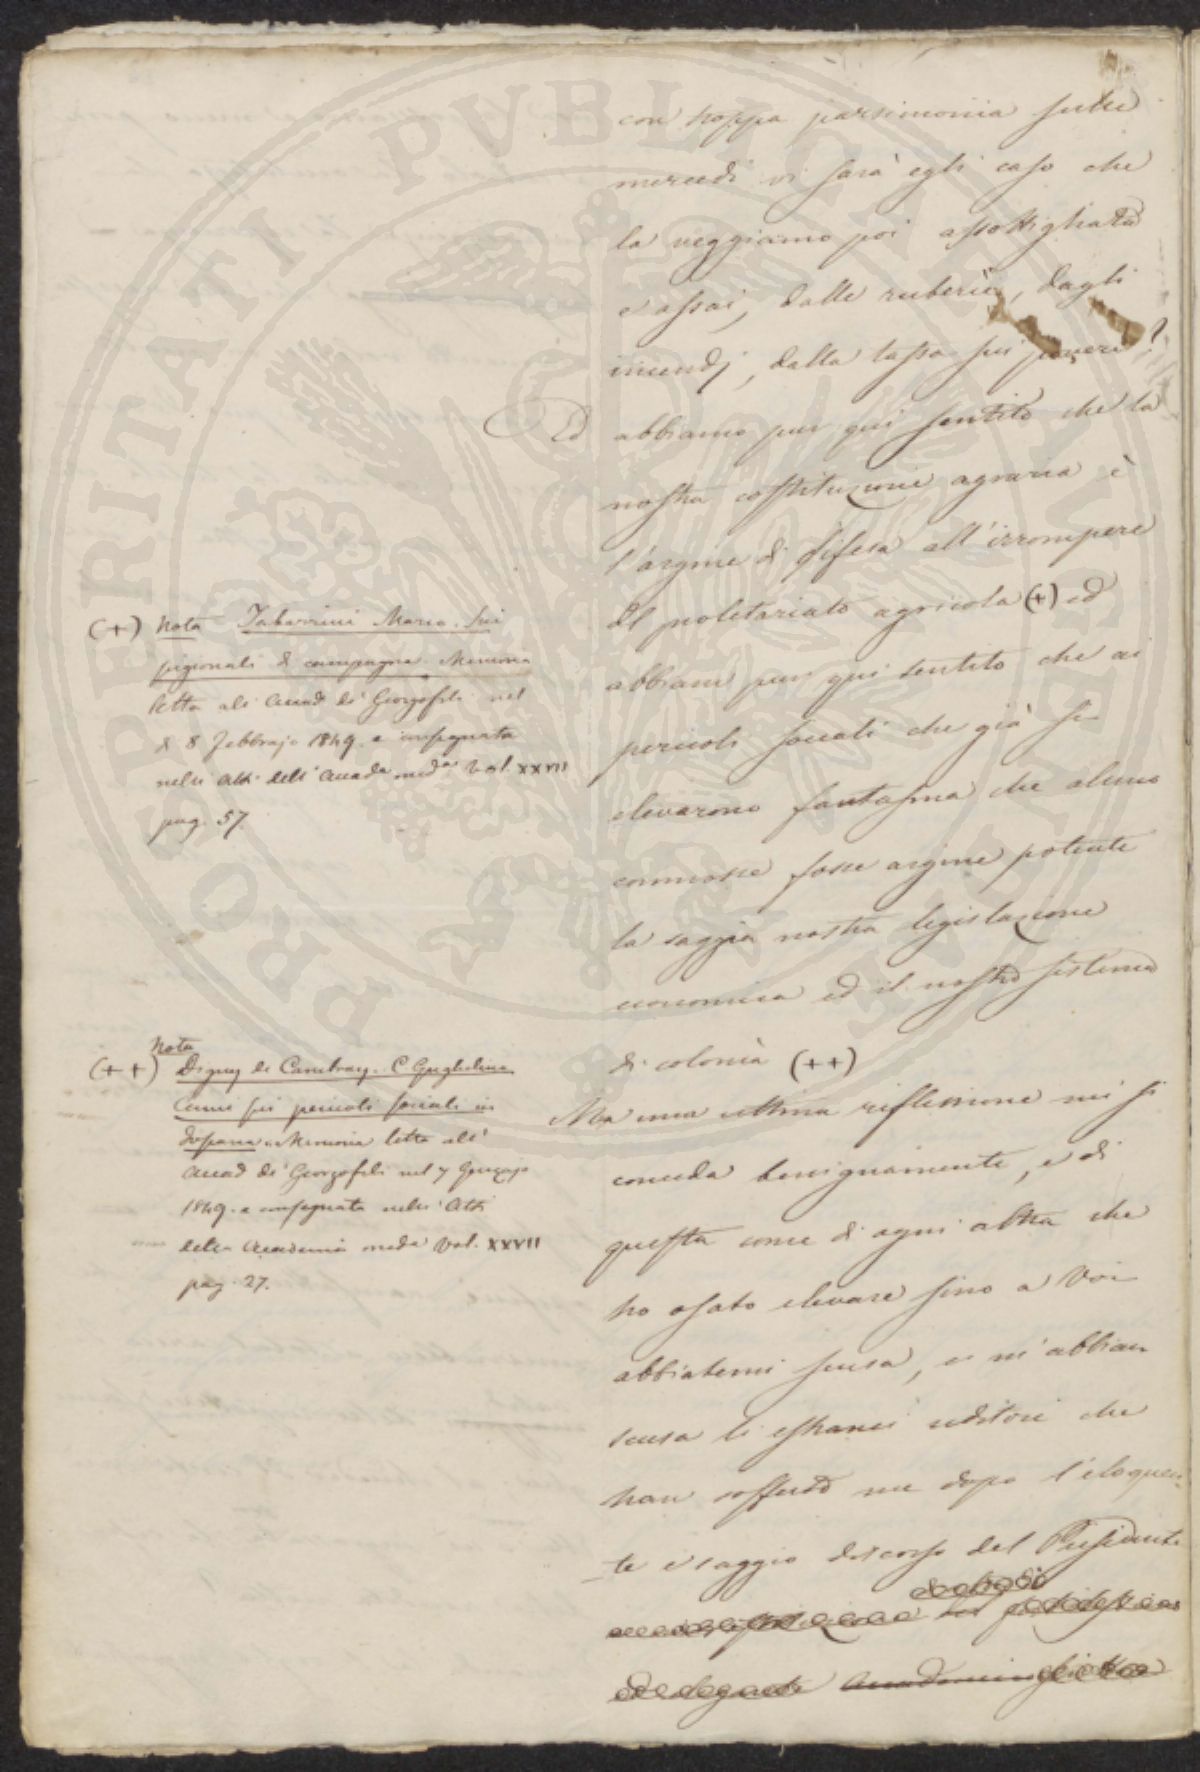 con troppa parsimonia sulle
mercedi vi sarà egli caso che
la veggiamo poi assottigliata
e assai, dalle ruberie, dagli
incendj, dalla tassa sui poveri?
Ed abbiamo pur qui sentito che la
nostra costituzione agraria è
l'argine di difesa all'irrompere
del proletariato agricola (+) ed
abbiam pur qui sentito che ai
pericoli sociali che già si
elevarono fantasma che alcuno
commosse fosse argine potente
la saggia nostra legislazione
economica ed il nostro sistema
di colonìa (++)
Ma una ultima riflessione mi si
conceda benignamente, e di
questa come di ogni altra che
ho osato elevare sino a Voi
abbiatemi scusa, e m'abbian
scusa li estranei uditori che
han sofferto me dopo l'eloquen
-te e saggio discorso del Presidente
(+) Nota Tabarrini Marco. Sui
pigionali di campagna. Memoria
letta all'Accad dei Georgofili nel
dì 8 Febbrajo 1849. e consegnata
nelli Atti dell'Accada meda Vol. XXVII
pag. 57.
(++) Nota
Digny de Cambray. C Guglielmo
Cenni sui pericoli sociali in
Toscana. Memoria letta all'
Accad dei Georgofili nel 7 Gennajo
1849. e consegnata nelli Atti
della Accademia meda Vol. XXVII
pag. 27.
PROPERITATI PVBLICAE AVGENDAE